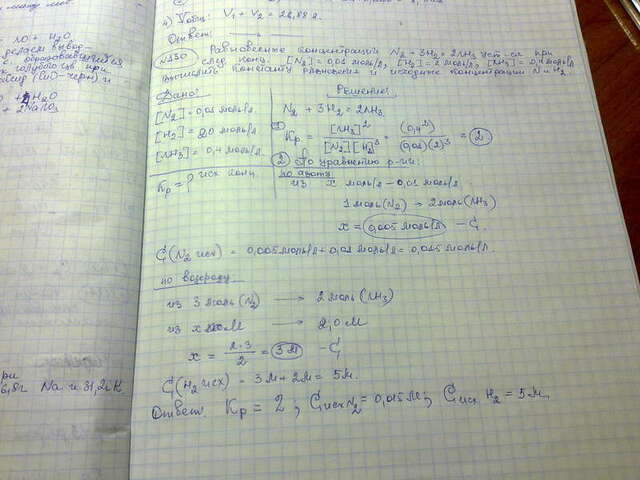 4) Vобщ: V₁ + V₂ = 26,88 л.
Ответ:
№330 Равновесные концентрации N₂ + 3H₂ = 2NH₃ при
след. конц. [N₂] = 0,01 моль/л, [H₂] = 2 моль/л, [NH₃] = 0,4 моль/л
вычислить константу равновесия и исходные концентрации N и H₂
Дано:
[N₂] = 0,01 моль/л
[H₂] = 2,0 моль/л
[NH₃] = 0,4 моль/л
Kр = ? исх конц.
Решение:
N₂ + 3H₂ = 2NH₃
① Kр = [NH₃]² / [N₂][H₂]³ = (0,4²) / (0,01)(2)³ = 2
② По уравнению р-ии:
по азоту
из x моль/л – 0,01 моль/л
1 моль(N₂) → 2 моль(NH₃)
x = 0,005 моль/л – C
C(N₂ исх) = 0,005 моль/л + 0,01 моль/л = 0,015 моль/л.
по водороду
из 3 моль(N₂) → 2 моль(NH₃)
из x M → 2,0 M
x = 2·3 / 2 = 3 M – C
C(H₂ исх) = 3M + 2M = 5M.
Ответ: Kр = 2; C исх N₂ = 0,015 M; C исх H₂ = 5M.
делаем вывод
+ H₂O
+ 2NaNO₃
при
Na и 31,2г K